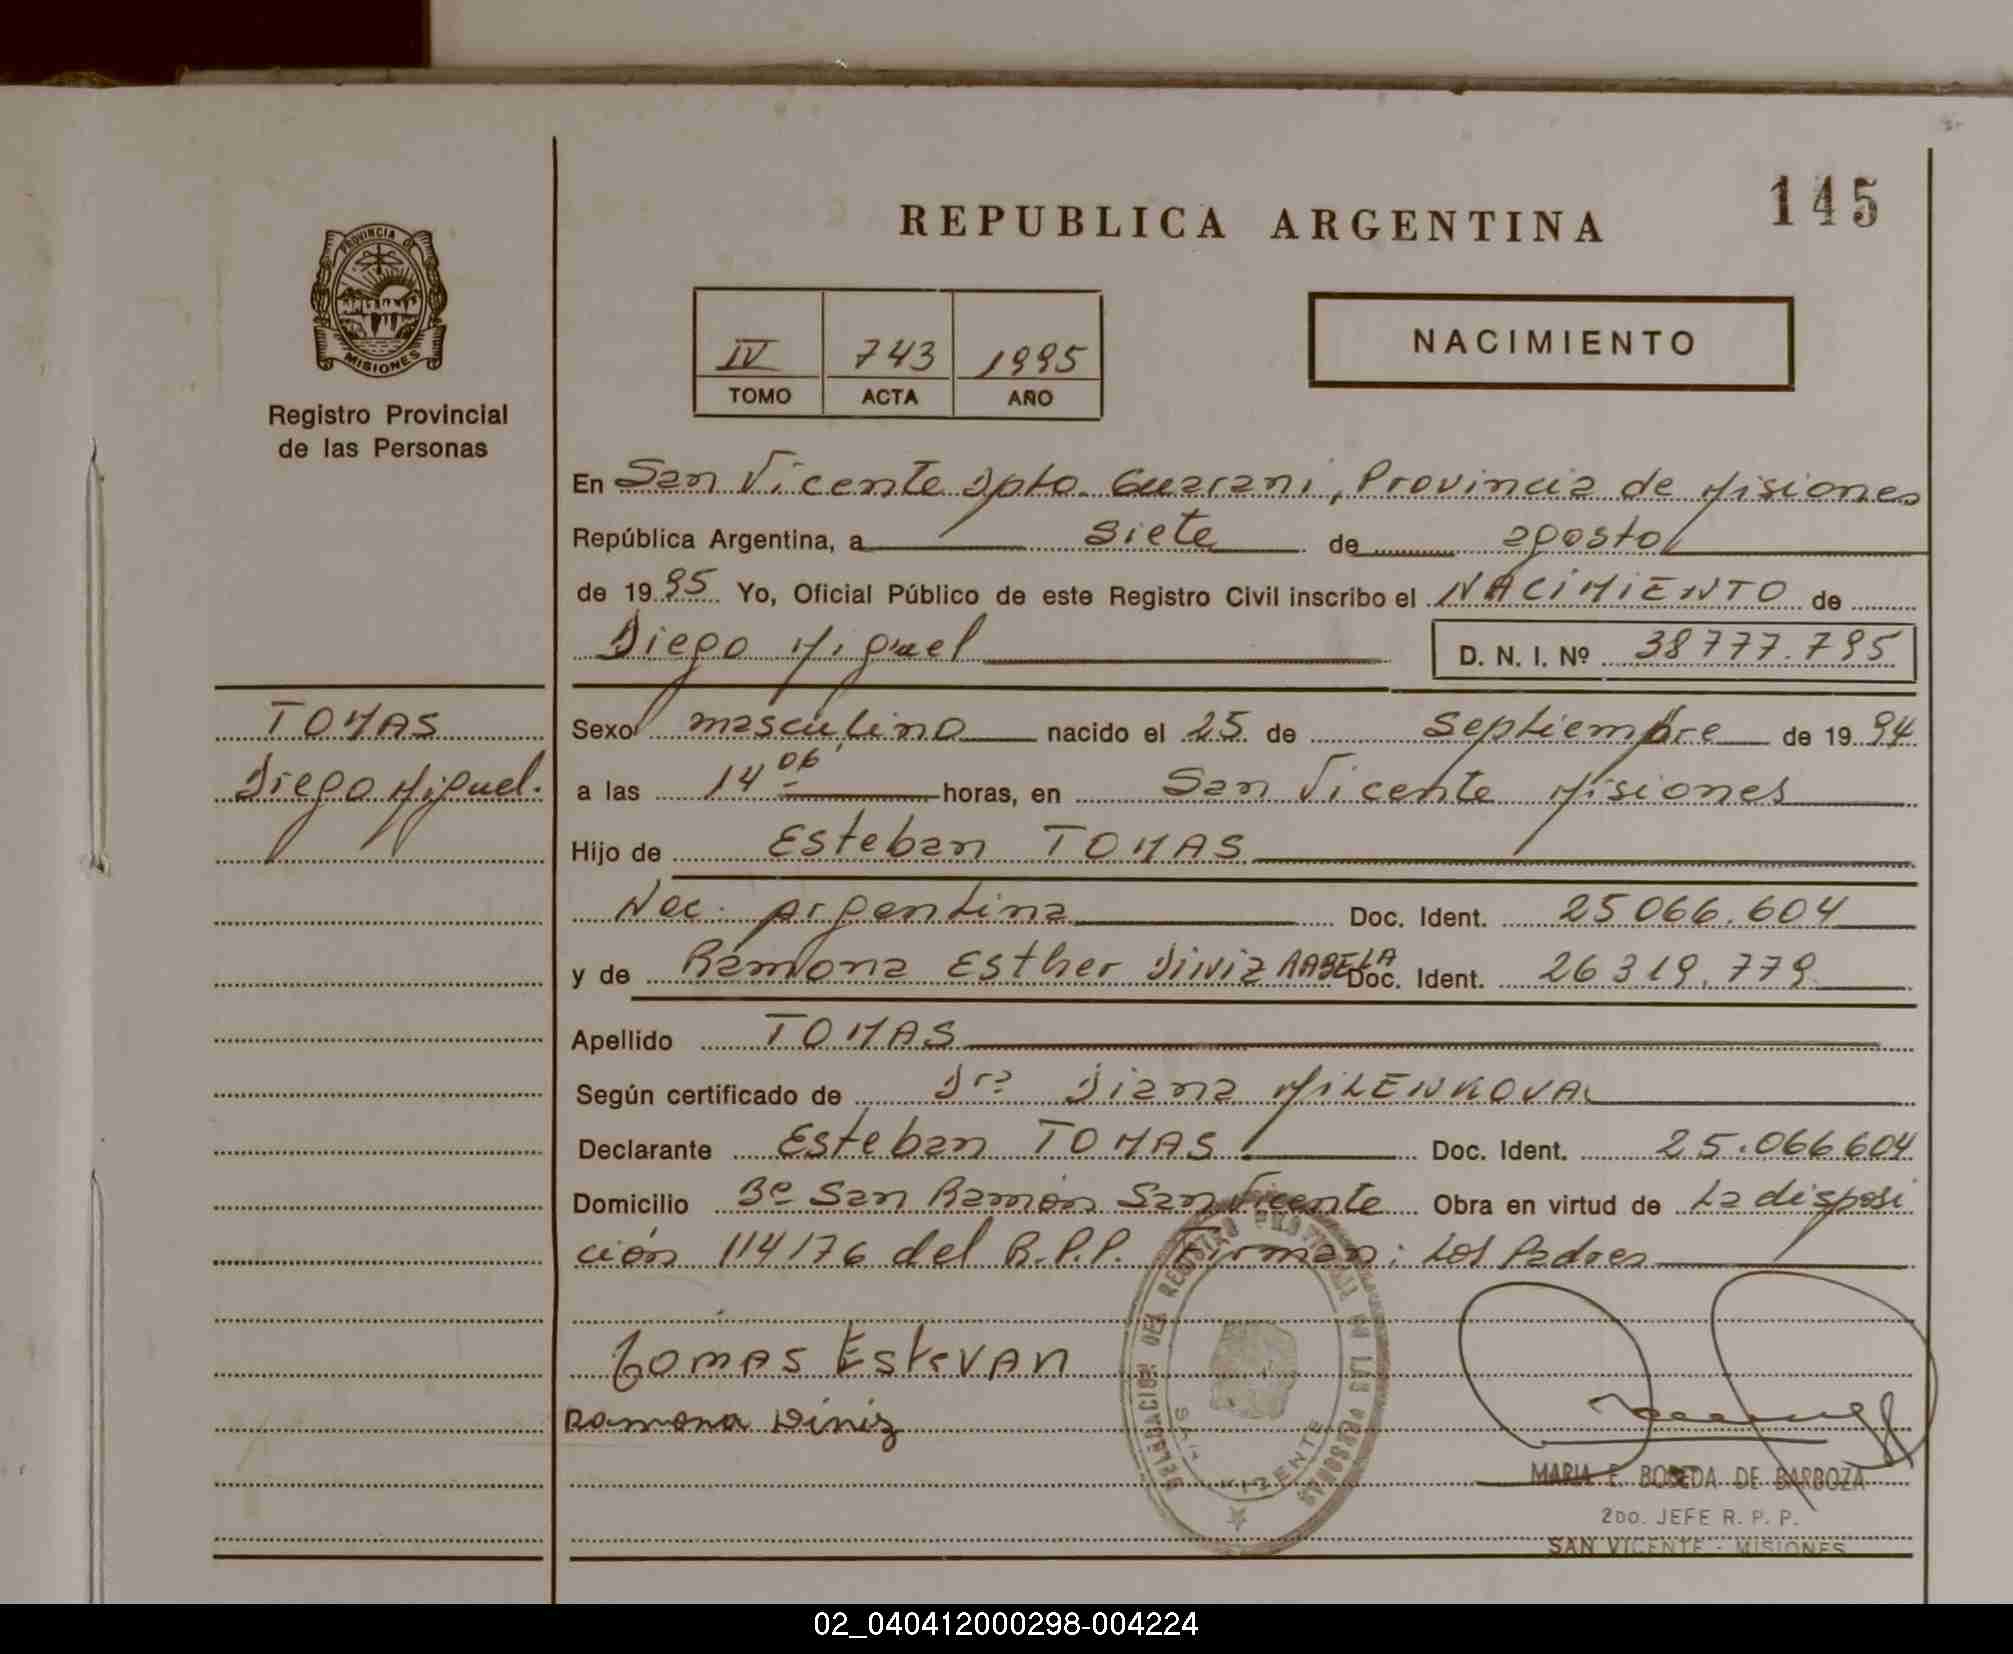 REPUBLICA ARGENTINA
145
PROVINCIA DE
MISIONES
Registro Provincial
de las Personas
IV 743 1995
TOMO ACTA AÑO
NACIMIENTO
En San Vicente Dpto. Guarani, Provincia de Misiones
República Argentina, a siete de agosto
de 1995 Yo, Oficial Público de este Registro Civil inscribo el NACIMIENTO de
Diego Miguel D. N. I. Nº 38777.795
TOMAS
Diego Miguel.
Sexo masculino nacido el 25 de Septiembre de 1994
a las 14 06 horas, en San Vicente Misiones
Hijo de Esteban TOMAS
Nac. Argentina Doc. Ident. 25066.604
y de Ramona Esther Diniz Doc. Ident. 26319.779
Apellido TOMAS
Según certificado de Dra Diana MILENKOVA
Declarante Esteban TOMAS Doc. Ident. 25.066604
Domicilio Bº San Ramón San Vicente Obra en virtud de La disposi
ción 114/76 del R.P.P. Firman: Los Padres
Tomas Estevan
Ramona Diniz
DELEGACION DEL REGISTRO PROVINCIAL DE LAS PERSONAS
SAN VICENTE
MARIA E. BOBEDA DE BARBOZA
2DO. JEFE R. P. P.
SAN VICENTE - MISIONES
02_040412000298-004224